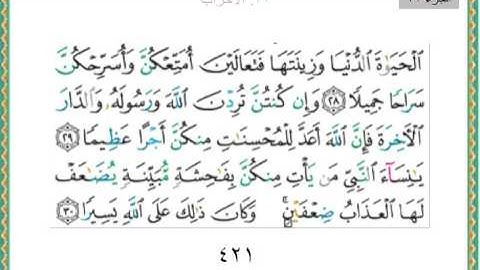 الْحَيَوٰةَ الدُّنْيَا وَزِينَتَهَا فَتَعَالَيْنَ أُمَتِّعْكُنَّ وَأُسَرِّحْكُنَّ
سَرَاحًا جَمِيلًا ٢٨ وَإِن كُنتُنَّ تُرِدْنَ اللَّهَ وَرَسُولَهُ وَالدَّارَ
الْآخِرَةَ فَإِنَّ اللَّهَ أَعَدَّ لِلْمُحْسِنَاتِ مِنكُنَّ أَجْرًا عَظِيمًا ٢٩
يَا نِسَاءَ النَّبِيِّ مَن يَأْتِ مِنكُنَّ بِفَاحِشَةٍ مُّبَيِّنَةٍ يُضَاعَفْ
لَهَا الْعَذَابُ ضِعْفَيْنِ ۚ وَكَانَ ذَٰلِكَ عَلَى اللَّهِ يَسِيرًا ٣٠
٤٢١